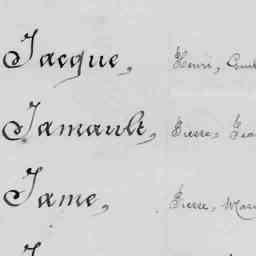 Jacque, Henri,
Jamault, Pierre,
Jame, Pierre,